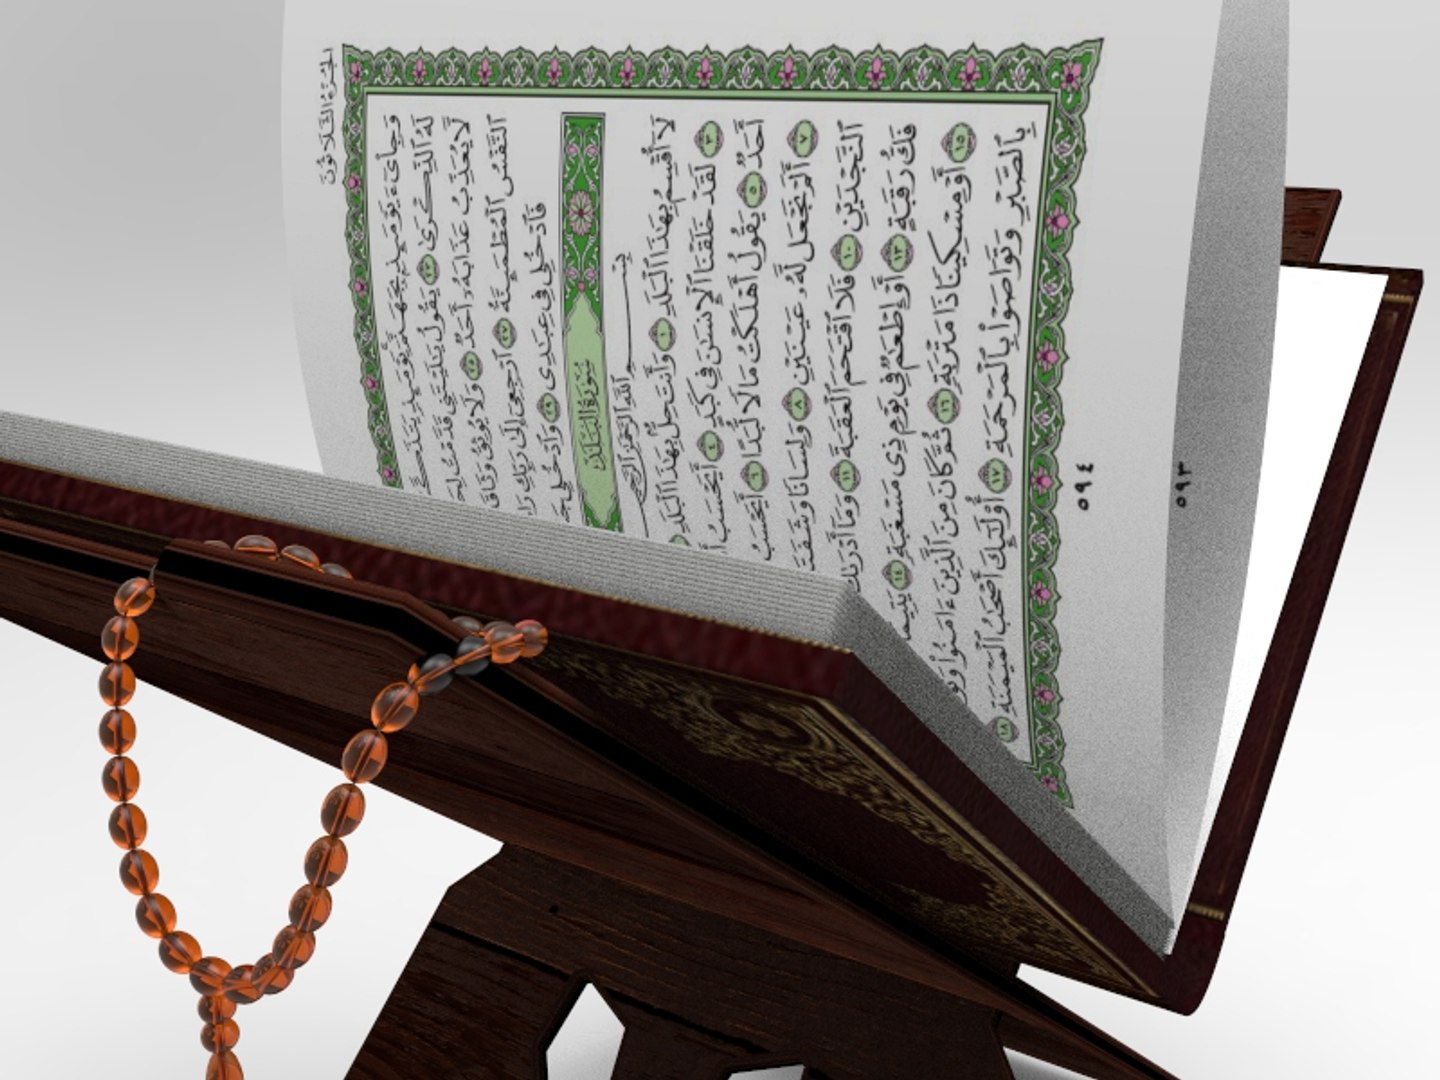 الجُزْءُ الثَّلَاثُونَ
وَجِاْىٓءَ يَوْمَئِذٍۭ بِجَهَنَّمَ يَوْمَئِذٍ
لَهُ ٱلذِّكْرَىٰ ٢٣ يَقُولُ يَٰلَيْتَنِى قَدَّمْتُ
لَّا يُعَذِّبُ عَذَابَهُۥٓ أَحَدٌ ٢٥ وَلَا يُوثِقُ
ٱلنَّفْسُ ٱلْمُطْمَئِنَّةُ ٢٧ ٱرْجِعِىٓ إِلَىٰ رَبِّكِ
فَٱدْخُلِى فِى عِبَٰدِى ٢٩ وَٱدْخُلِى
سُورَةُ الْبَلَدِ
بِسْمِ ٱللَّهِ ٱلرَّحْمَٰنِ ٱلرَّحِيمِ
لَآ أُقْسِمُ بِهَٰذَا ٱلْبَلَدِ ١ وَأَنتَ حِلٌّۢ بِهَٰذَا ٱلْبَلَدِ
٣ لَقَدْ خَلَقْنَا ٱلْإِنسَٰنَ فِى كَبَدٍ ٤ أَيَحْسَبُ
أَحَدٌ ٥ يَقُولُ أَهْلَكْتُ مَالًا لُّبَدًا ٦ أَيَحْسَبُ
٧ أَلَمْ نَجْعَل لَّهُۥ عَيْنَيْنِ ٨ وَلِسَانًا
ٱلنَّجْدَيْنِ ١٠ فَلَا ٱقْتَحَمَ ٱلْعَقَبَةَ ١١ وَمَآ أَدْرَىٰكَ
فَكُّ رَقَبَةٍ ١٣ أَوْ إِطْعَٰمٌ فِى يَوْمٍ ذِى مَسْغَبَةٍ ١٤ يَتِيمًا
١٥ أَوْ مِسْكِينًا ذَا مَتْرَبَةٍ ١٦ ثُمَّ كَانَ مِنَ ٱلَّذِينَ ءَامَنُوا۟
بِٱلصَّبْرِ وَتَوَاصَوْا۟ بِٱلْمَرْحَمَةِ ١٧ أُو۟لَٰٓئِكَ أَصْحَٰبُ ٱلْمَيْمَنَةِ ١٨
٥٩٤
٥٩٣